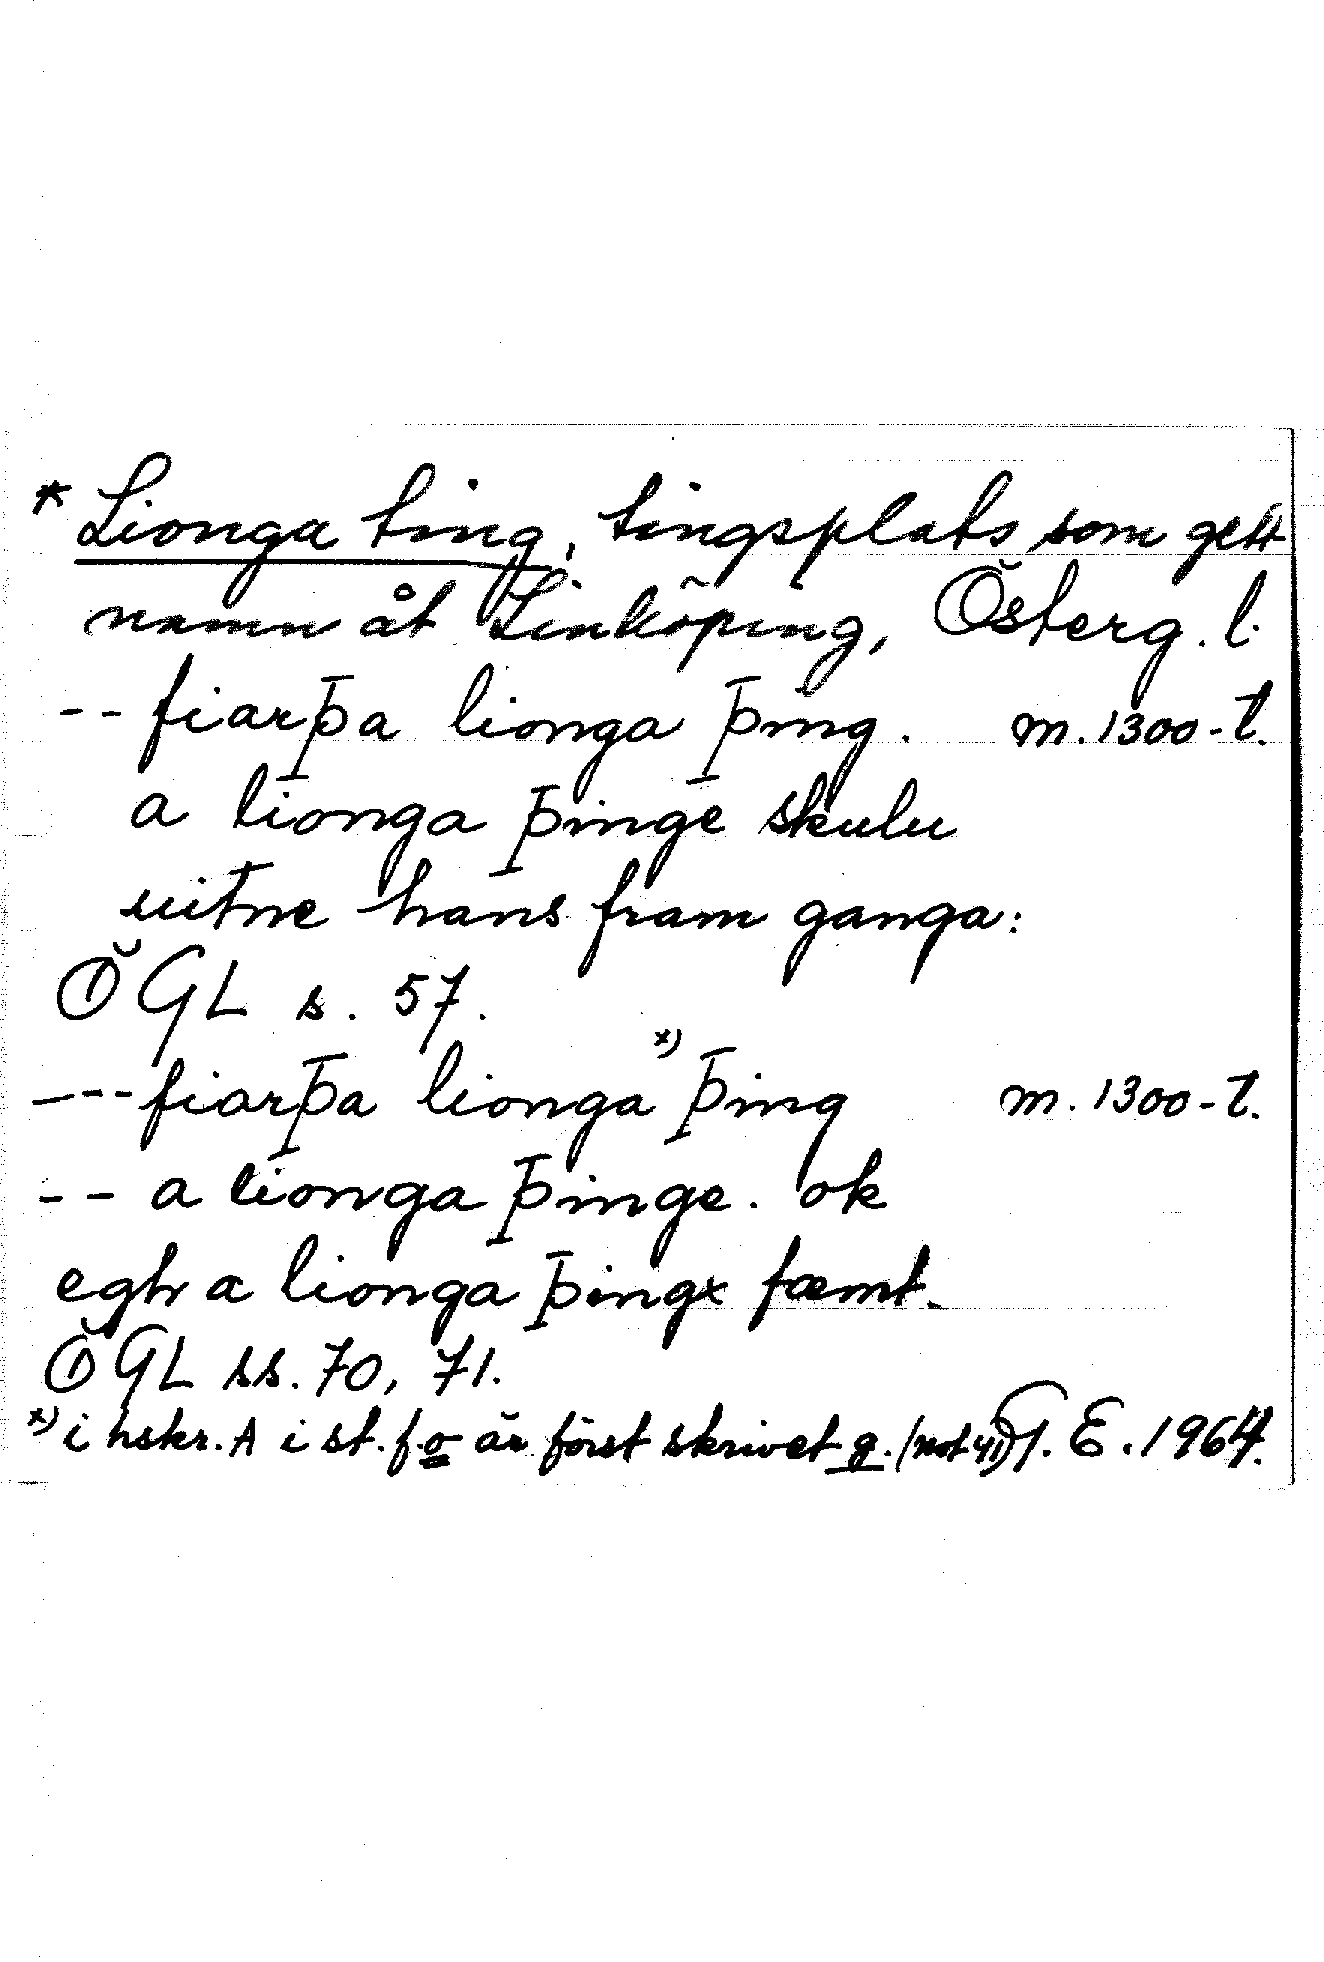 * Lionga ting, tingsplats som gett
namn åt Linköping, Österg. l.
-- fiarþa lionga þing. m. 1300-t.
a lionga þinge skulu
uitne hans fram ganga:
ÖGL s. 57.
--- fiarþa lionga x) þing m. 1300-t.
-- a lionga þinge. ok
egh a lionga þingx fæmt.
ÖGL ss. 70, 71.
x) i hskr. A i st. f. o är först skrivet g. (not 41) T. E. 1964.